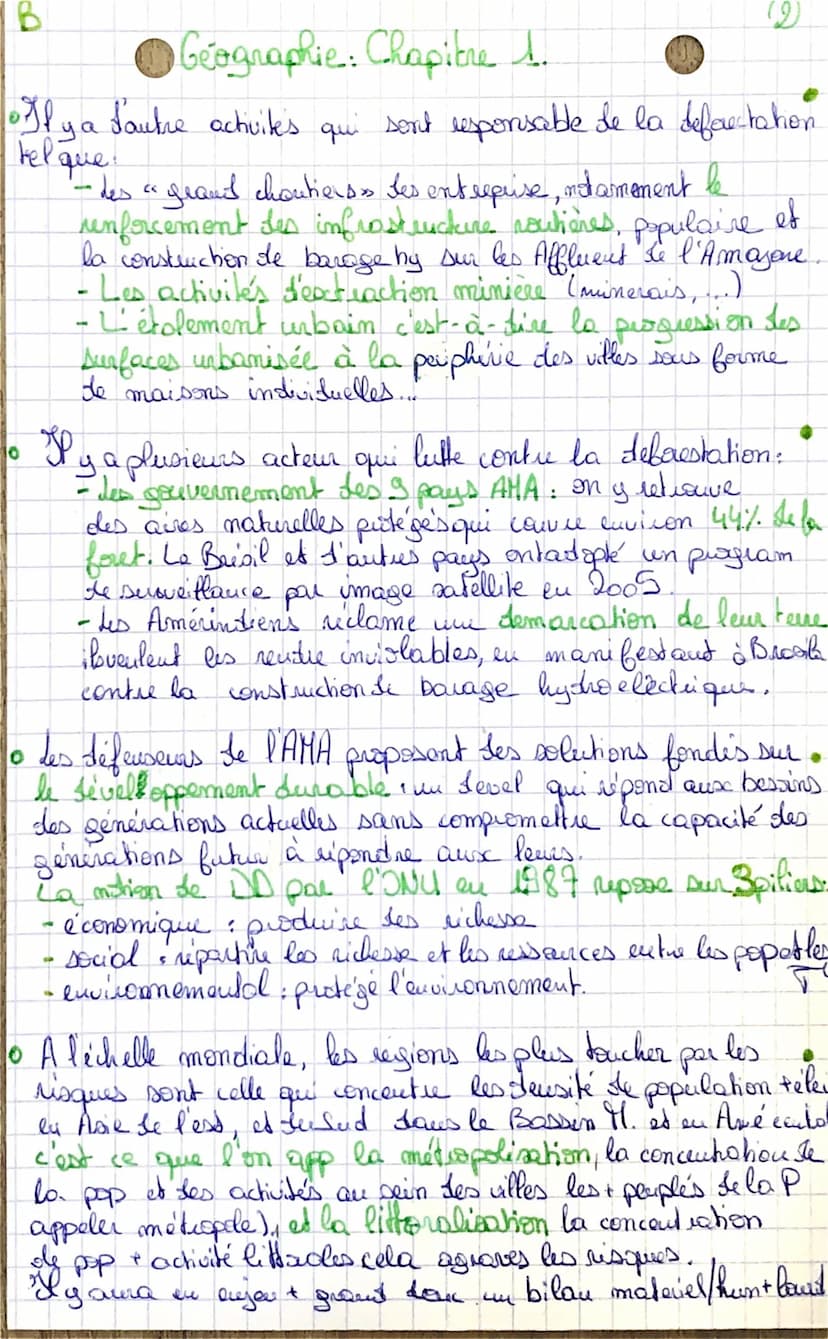 B
(2)
Géographie : Chapitre 1.
Il y a d'autre activités qui sont responsable de la deforectation
tel que :
- les "grand chantiers" des entreprise, notamment le
renforcement des infrastructure routières, populaire et
la construction de barage hy sur les Affluent de l'Amazone.
- Les activités d'extraction minière (minerais, ...)
- L'étalement urbain c'est-à-dire la progression des
surfaces urbanisée à la périphérie des villes sous forme
de maisons individuelles...
Il y a plusieurs acteur qui lutte contre la deforestation :
- les gouvernement des 9 pays AMA : on y retrouve
des aires naturelles protégés qui couvre environ 44% de la
foret. Le Brésil et d'autres pays ont adopté un program
de surveillance par image satellite en 2005.
- Les Amérindiens réclame une demarcation de leur terre
ils veulent les rendre inviolables, en manifestant à
contre la construction de barage hydroelèctrique.
Les défenseurs de l'AMA proposent des solutions fondés sur
le dévelloppement durable : un devel qui répond aux besoins
des générations actuelles sans compromettre la capacité des
générations futur à répondre aux leurs.
La notion de DD par l'ONU en 1987 repose sur 3 piliers.
- économique : produire des richesse
- social : répartire les richesse et les ressources entre les
- environnemental : protégé l'environnement.
A l'échelle mondiale, les régions les plus toucher par les
risques sont celle qui concentre les densité de population
en Asie de l'est, et du Sud dans le Bassin M. et en
c'est ce que l'on app la métropolisation, la concentration de
la pop et des activités au sein des villes les + peuplés de la P
appeler métropole), et la littoralisation la concentration
de pop + activité cela agraves les risques.
Il y aura en enjeu + grand donc un bilan matériel/hum + lourd